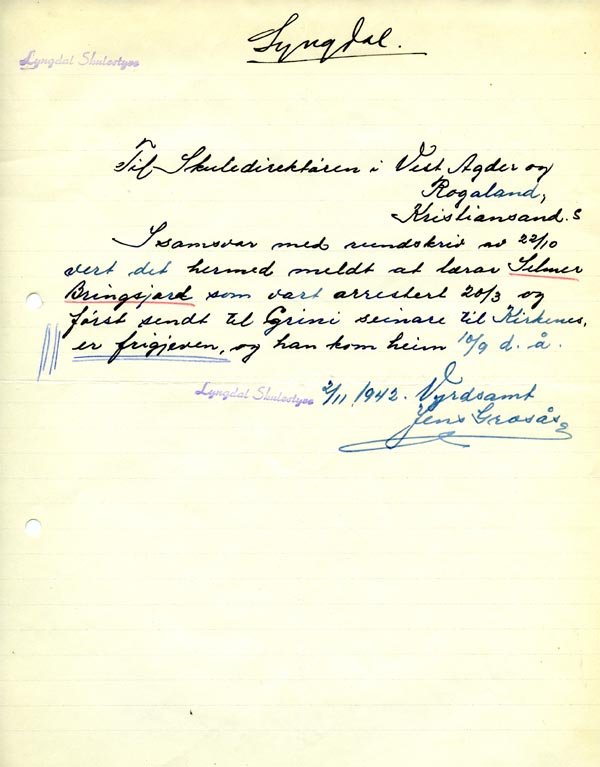 Lyngdal.
Lyngdal Skulestyre
Til Skuledirektören i Vest Agder og
Rogaland,
Kristiansand. S
I samsvar med rundskriv av 22/10
vert det hermed meldt at lærar Selmer
Bringsjord som vart arrestert 20/3 og
först sendt til Grini seinare til Kirkenes,
er frigjeven, og han kom heim 10/9 d. å.
Lyngdal Skulestyre 2/11 1942. Vyrdsamt
Jens Grosås